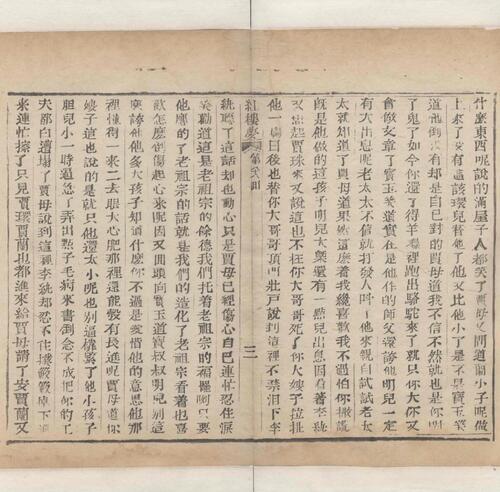 什麼東西呢說的滿屋子人都笑了賈母又問道蘭小子呢做
上來了没有這該環兒替他了他又比他小了是不是寳玉笑
道他倒没有却是自已對的賈母道我不信不然就也是你閙
了鬼了如今你還了得羊羣裡跑出駱駝來了就只你大你又
會做文章了寳玉笑道實在是他作的師父還誇他明兒一定
有大出息呢老太太不信就打發人呌了他來親自試試老太
太就知道了賈母道果然這麽着我纔喜歡我不過怕你撒謊
既是他做的這孩子明兒大槩還有一點兒出息因看着李紈
又想起賈珠來又說這也不枉你大哥哥死了你大嫂子拉扯
他一塲日後也替你大哥哥頂門壯户說到這裡不禁淚下李
紅樓夢 第八八囬 三
紈聽了這話却也動心只是賈母已經傷心自已連忙忍住淚
笑勸道這是老祖宗的餘德我們托着老祖宗的福罷咧只要
他應的了老祖宗的話就是我們的造化了老祖宗看着也喜
歡怎麽倒傷起心來呢因又囬頭向寳玉道寳叔叔明兒别這
麽誇他他多大孩子知道什麽你不過是愛惜他的意思他那
裡懂得一來二去眼大心肥那裡還能彀有長進呢賈母道你
嫂子這也說的是就只他還太小呢也别逼䋲緊了他小孩子
胆兒小一時逼急了弄出點子毛病來書倒念不成把你的工
夫都白遭塌了賈母說到這裡李紈却忍不住撲簌簌掉下淚
來連忙擦了只見賈環賈蘭也都進來給賈母請了安賈蘭又